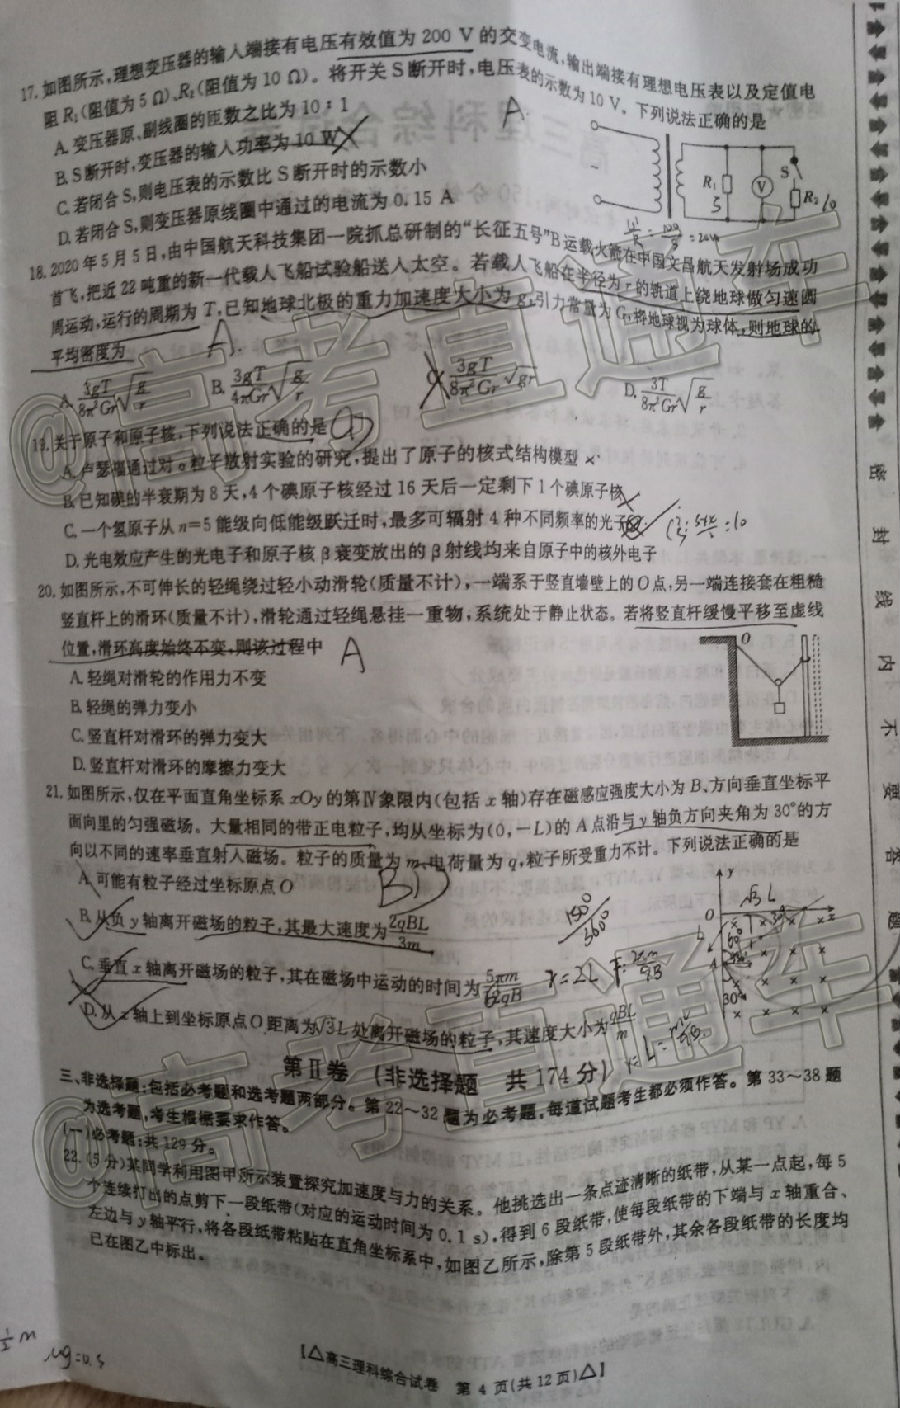 17.如图所示,理想变压器的输入端接有电压有效值为200 V的交变电流,输出端接有理想电压表以及定值电
阻R₁(阻值为5 Ω)、R₂(阻值为10 Ω)。将开关S断开时,电压表的示数为10 V。下列说法正确的是
A
A.变压器原、副线圈的匝数之比为10:1
B.S断开时,变压器的输入功率为10 W
C.若闭合S,则电压表的示数比S断开时的示数小
D.若闭合S,则变压器原线圈中通过的电流为0.15 A
R₁
5
V
S
R₂
10
18.2020年5月5日,由中国航天科技集团一院抓总研制的“长征五号”B运载火箭在中国文昌航天发射场成功
首飞,把近22吨重的新一代载人飞船试验船送入太空。若载人飞船在半径为r的轨道上绕地球做匀速圆
周运动,运行的周期为T,已知地球北极的重力加速度大小为g,引力常量为G,将地球视为球体,则地球的
平均密度为
A
A.3gT/8π²Gr √(g/r)
B.3gT/4πGr √(g/r)
C.3gT/8π²Gr √gr
D.3T/8π²Gr √(g/r)
19.关于原子和原子核,下列说法正确的是
A.卢瑟福通过对α粒子散射实验的研究,提出了原子的核式结构模型
B.已知碘的半衰期为8天,4个碘原子核经过16天后一定剩下1个碘原子核
C.一个氢原子从n=5能级向低能级跃迁时,最多可辐射4种不同频率的光子
D.光电效应产生的光电子和原子核β衰变放出的β射线均来自原子中的核外电子
20.如图所示,不可伸长的轻绳绕过轻小动滑轮(质量不计),一端系于竖直墙壁上的O点,另一端连接套在粗糙
竖直杆上的滑环(质量不计),滑轮通过轻绳悬挂一重物,系统处于静止状态。若将竖直杆缓慢平移至虚线
位置,滑环高度始终不变,则该过程中
A
A.轻绳对滑轮的作用力不变
B.轻绳的弹力变小
C.竖直杆对滑环的弹力变大
D.竖直杆对滑环的摩擦力变大
O
21.如图所示,仅在平面直角坐标系xOy的第Ⅳ象限内(包括x轴)存在磁感应强度大小为B、方向垂直坐标平
面向里的匀强磁场。大量相同的带正电粒子,均从坐标为(0,-L)的A点沿与y轴负方向夹角为30°的方
向以不同的速率垂直射入磁场。粒子的质量为m、电荷量为q,粒子所受重力不计。下列说法正确的是
BD
A.可能有粒子经过坐标原点O
B.从负y轴离开磁场的粒子,其最大速度为2qBL/3m
C.垂直x轴离开磁场的粒子,其在磁场中运动的时间为5πm/12qB
D.从x轴上到坐标原点O距离为√3L处离开磁场的粒子,其速度大小为qBL/m
150°/360°
r=2L
y
√3L
O
x
A
30°
第Ⅱ卷 (非选择题 共174分)
三、非选择题:包括必考题和选考题两部分。第22~32题为必考题,每道试题考生都必须作答。第33~38题
为选考题,考生根据要求作答。
(一)必考题:共129分。
22.(5分)某同学利用图甲所示装置探究加速度与力的关系。他挑选出一条点迹清晰的纸带,从某一点起,每5
个连续打出的点剪下一段纸带(对应的运动时间为0.1 s),得到6段纸带,使每段纸带的下端与x轴重合、
左边与y轴平行,将各段纸带粘贴在直角坐标系中,如图乙所示,除第5段纸带外,其余各段纸带的长度均
已在图乙中标出。
【△高三理科综合试卷 第4页(共12页)△】
密
封
线
内
不
要
答
题
@高考直通车
@高考直通车